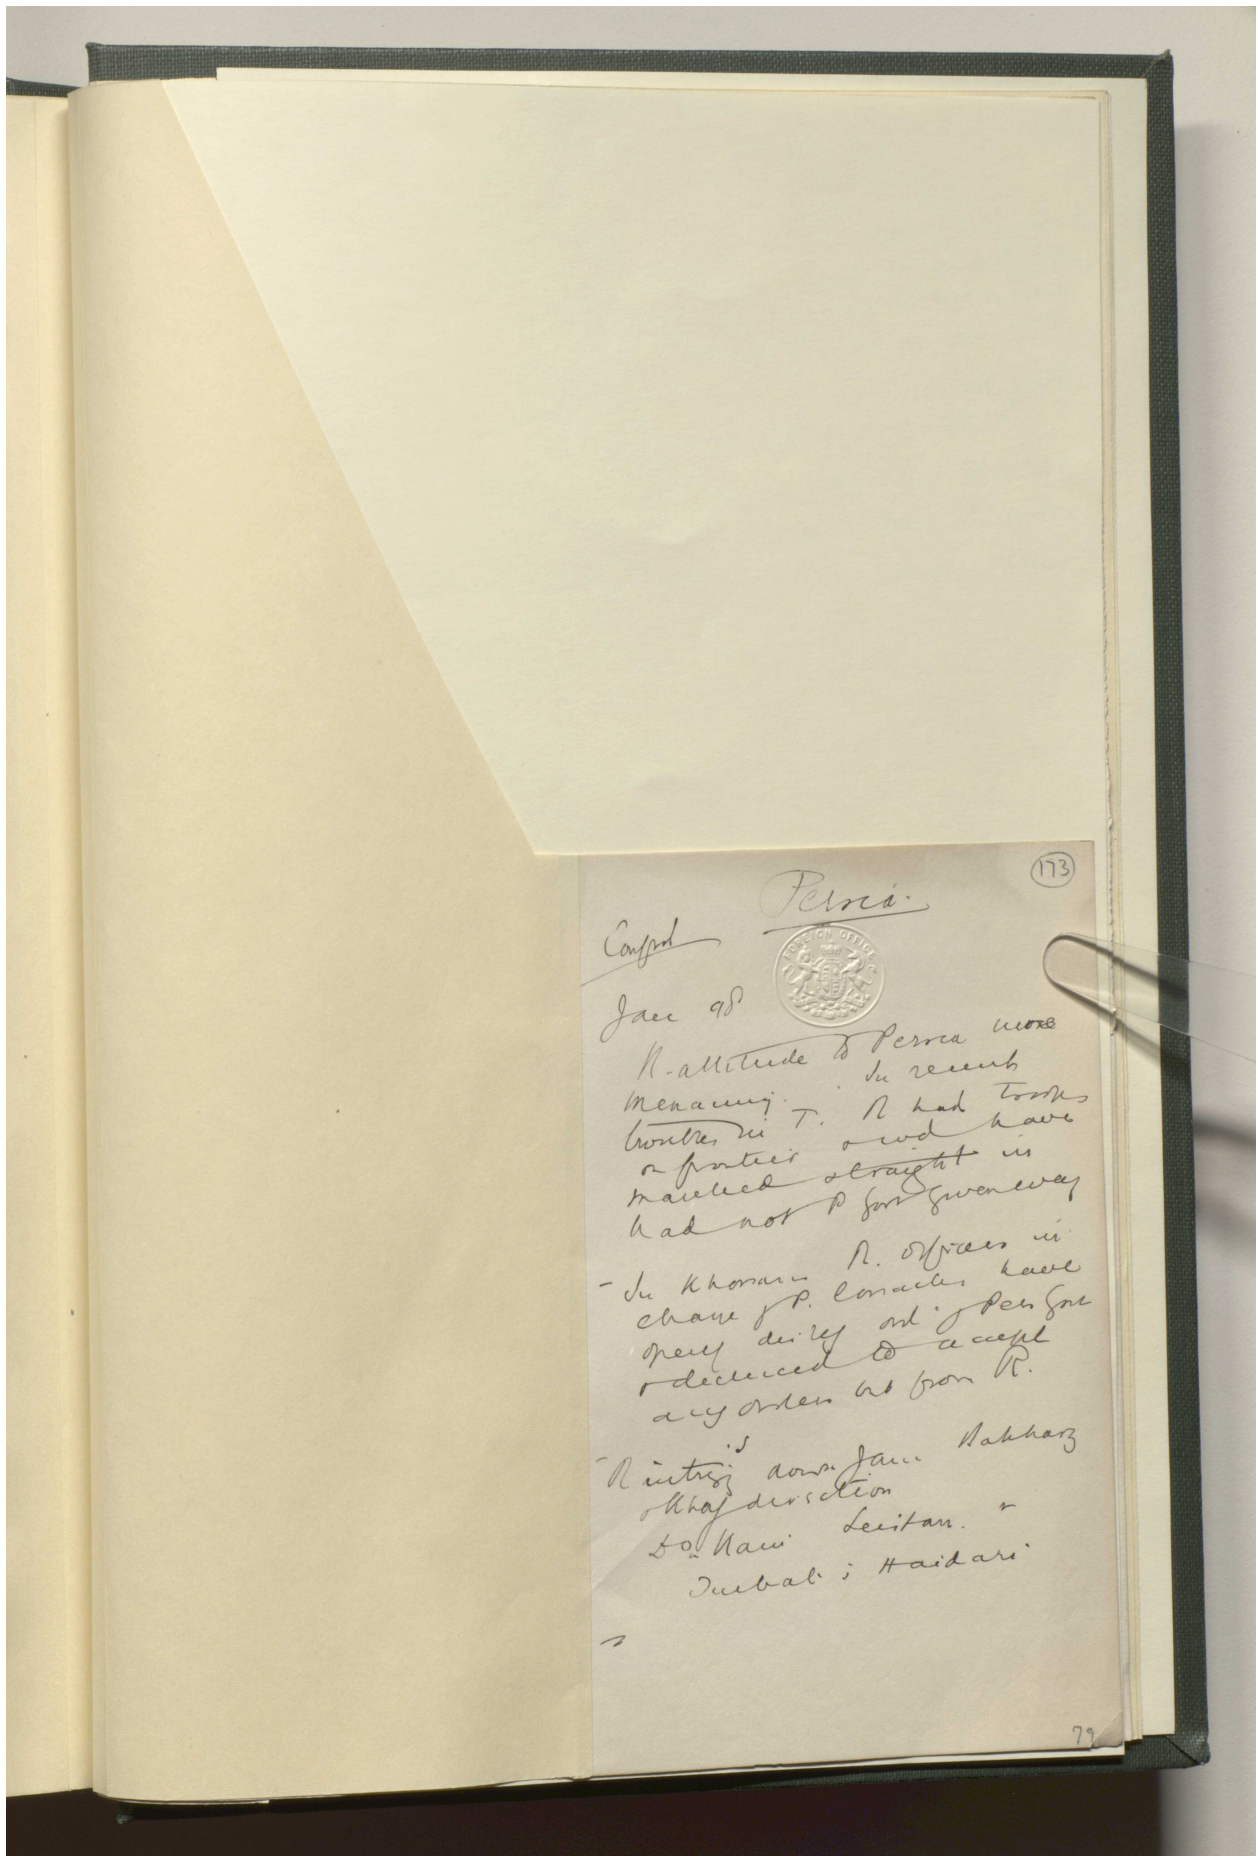 173
Persia.
FOREIGN OFFICE
Jan 98
R. attitude to Persia more
menacing. In recent
troubles in T. R had troops
on frontier & wd have
marched straight in
had not P Govt given way
- In Khorasan R. officers in
charge of P. Cossacks have
openly ord of Pers Govt
& declined to accept
any orders but from R.
- R intrig down Jam Bakharz
& Khaf direction
Do Kain Seistan. "
Turbat i Haidari
79